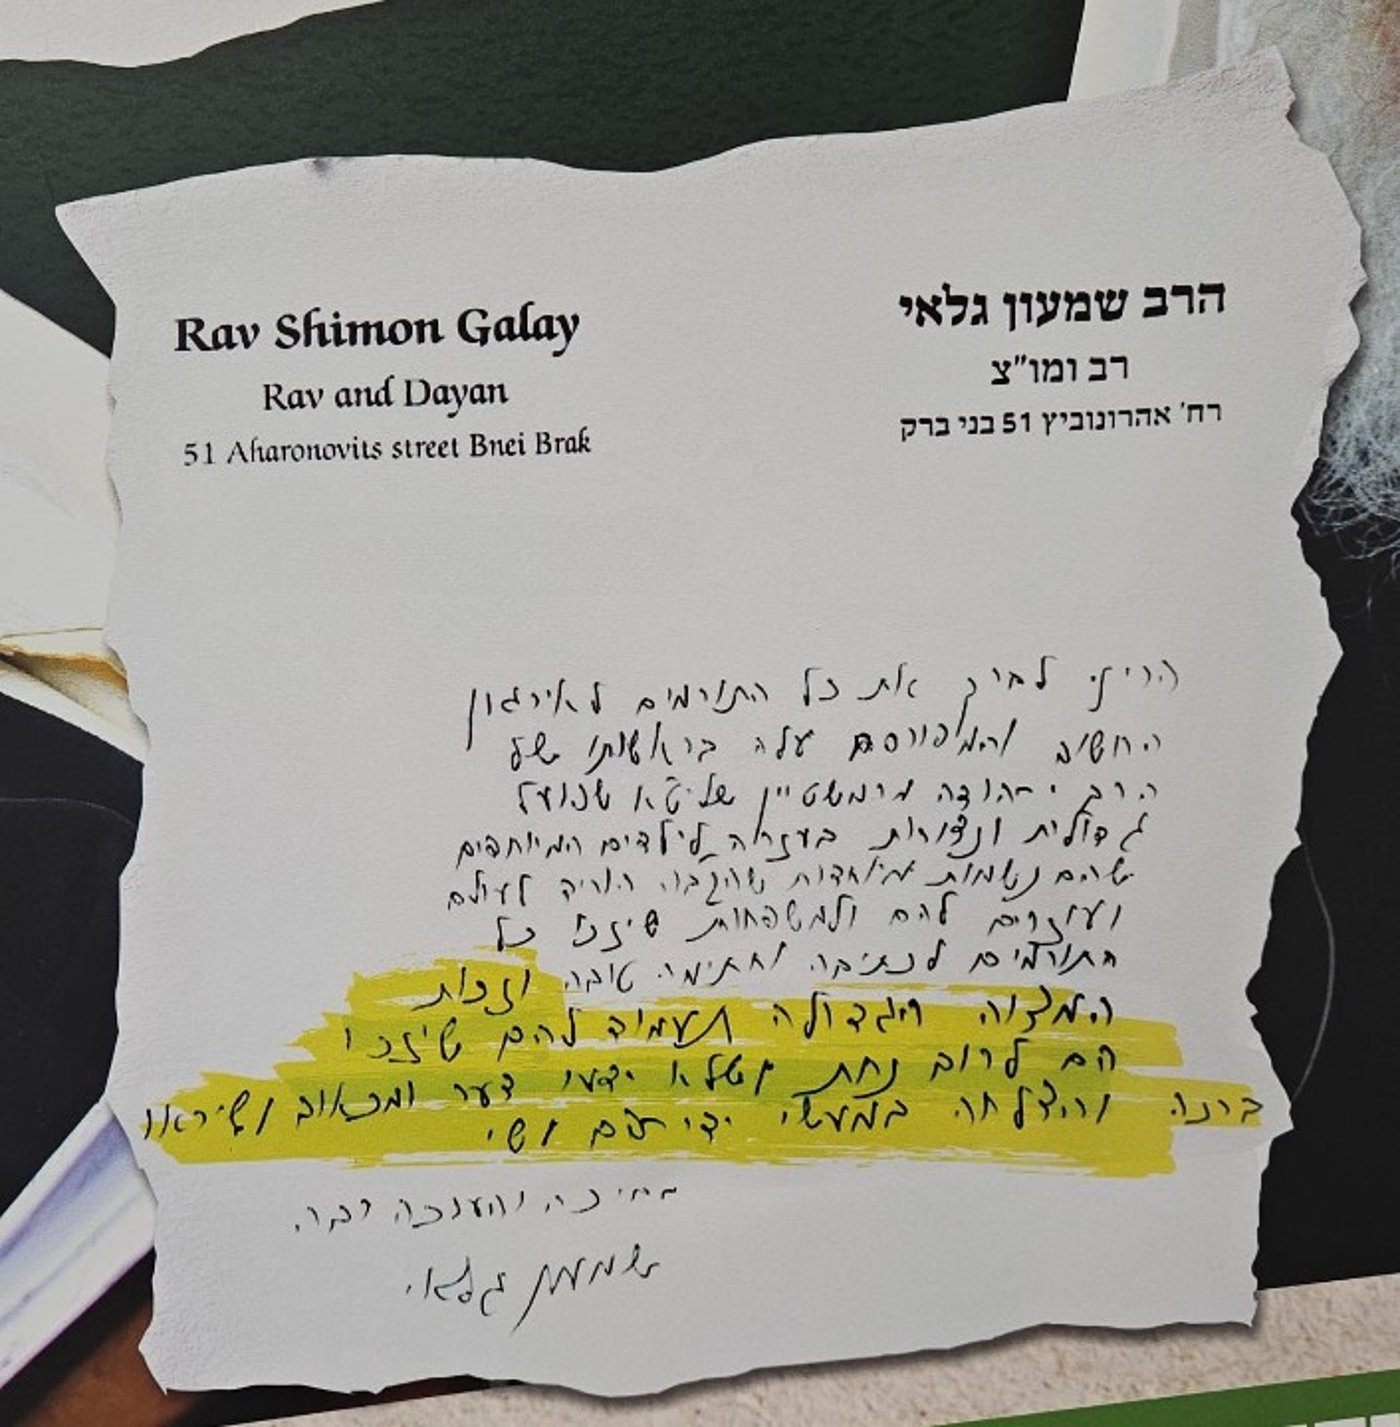 הרב שמעון גלאי
רב ומו"צ
רח' אהרונוביץ 51 בני ברק
Rav Shimon Galay
Rav and Dayan
51 Aharonovits street Bnei Brak
הריני לברך את כל התורמים לאירגון
החשוב והמפורסם עלה בראשותו של
הרב יהודה מרמשטיין שליט"א שפועל
גדולות ונצורות בעזרה לילדים המיוחדים
שהם נשמות מיוחדות שהקב"ה הוריד לעולם
ועוזרים להם ולמשפחות שיזכו כל
התורמים לכתיבה וחתימה טובה וזכות
המצוה הגדולה תעמוד להם שיזכו
הם לרוב נחת ושלא ידעו צער ומכאוב ושיראו
ברכה והצלחה במעשי ידיהם
בברכה והערכה רבה
שמעון גלאי